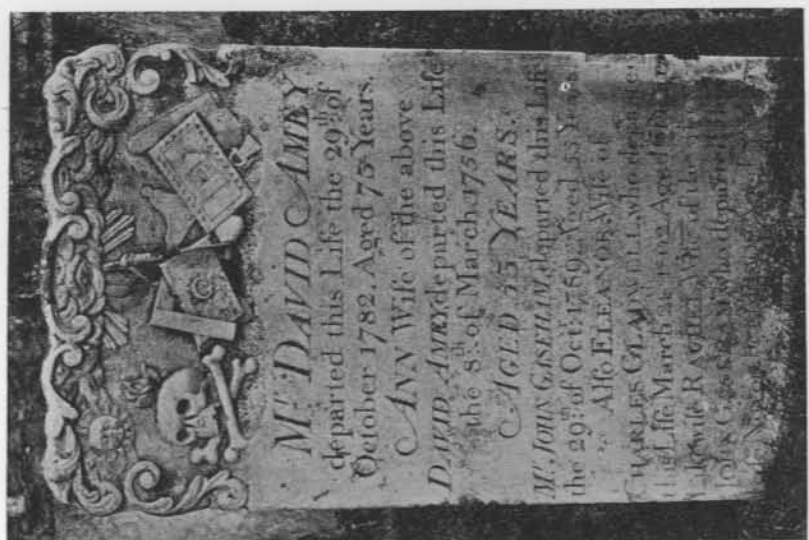 Mr. DAVID AMEY
departed this Life the 29th of
October 1782. Aged 75 Years.
ANN Wife of the above
DAVID AMEY departed this Life
the 8th of March 1756.
AGED 55 YEARS.
Mr. JOHN GASKHAM, departed this Life
the 29th of Octr. 1789. Aged 55 Years.
Alſo ELEANOR Wife of
CHARLES GLADWELL, who departed
this Life March Aged
Likewiſe RACHEL Wife of the
JOHN who departed this